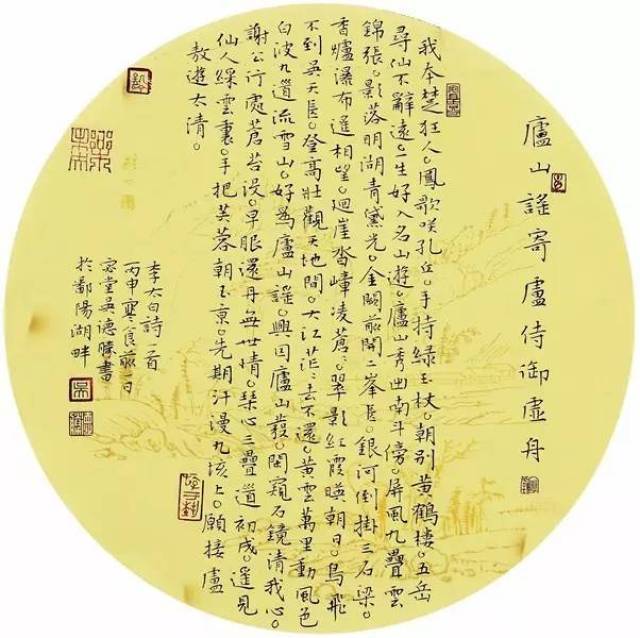 廬山謠寄廬侍御虛舟
我本楚狂人。鳳歌咲孔丘。手持綠玉杖。朝別黃鶴樓。五岳
尋仙不辭遠。一生好入名山遊。廬山秀出南斗傍。屏風九疊雲
錦張。影落明湖青黛光。金闕前開二峯長。銀河倒掛三石梁。
香爐瀑布遙相望。迴崖沓嶂凌蒼蒼。翠影紅霞暎朝日。鳥飛
不到吳天長。登高壯觀天地間。大江茫茫去不還。黃雲萬里動風色
白波九道流雪山。好為廬山謠。興因廬山發。閒窺石鏡清我心。
謝公行處蒼苔沒。早服還丹無世情。琴心三疊道初成。遙見
仙人綵雲裏。手把芙蓉朝玉京。先期汗漫九垓上。願接盧
敖遊太清。
李太白詩一首
丙申寒食前一日
容堂吳德勝書
於鄱陽湖畔
吳